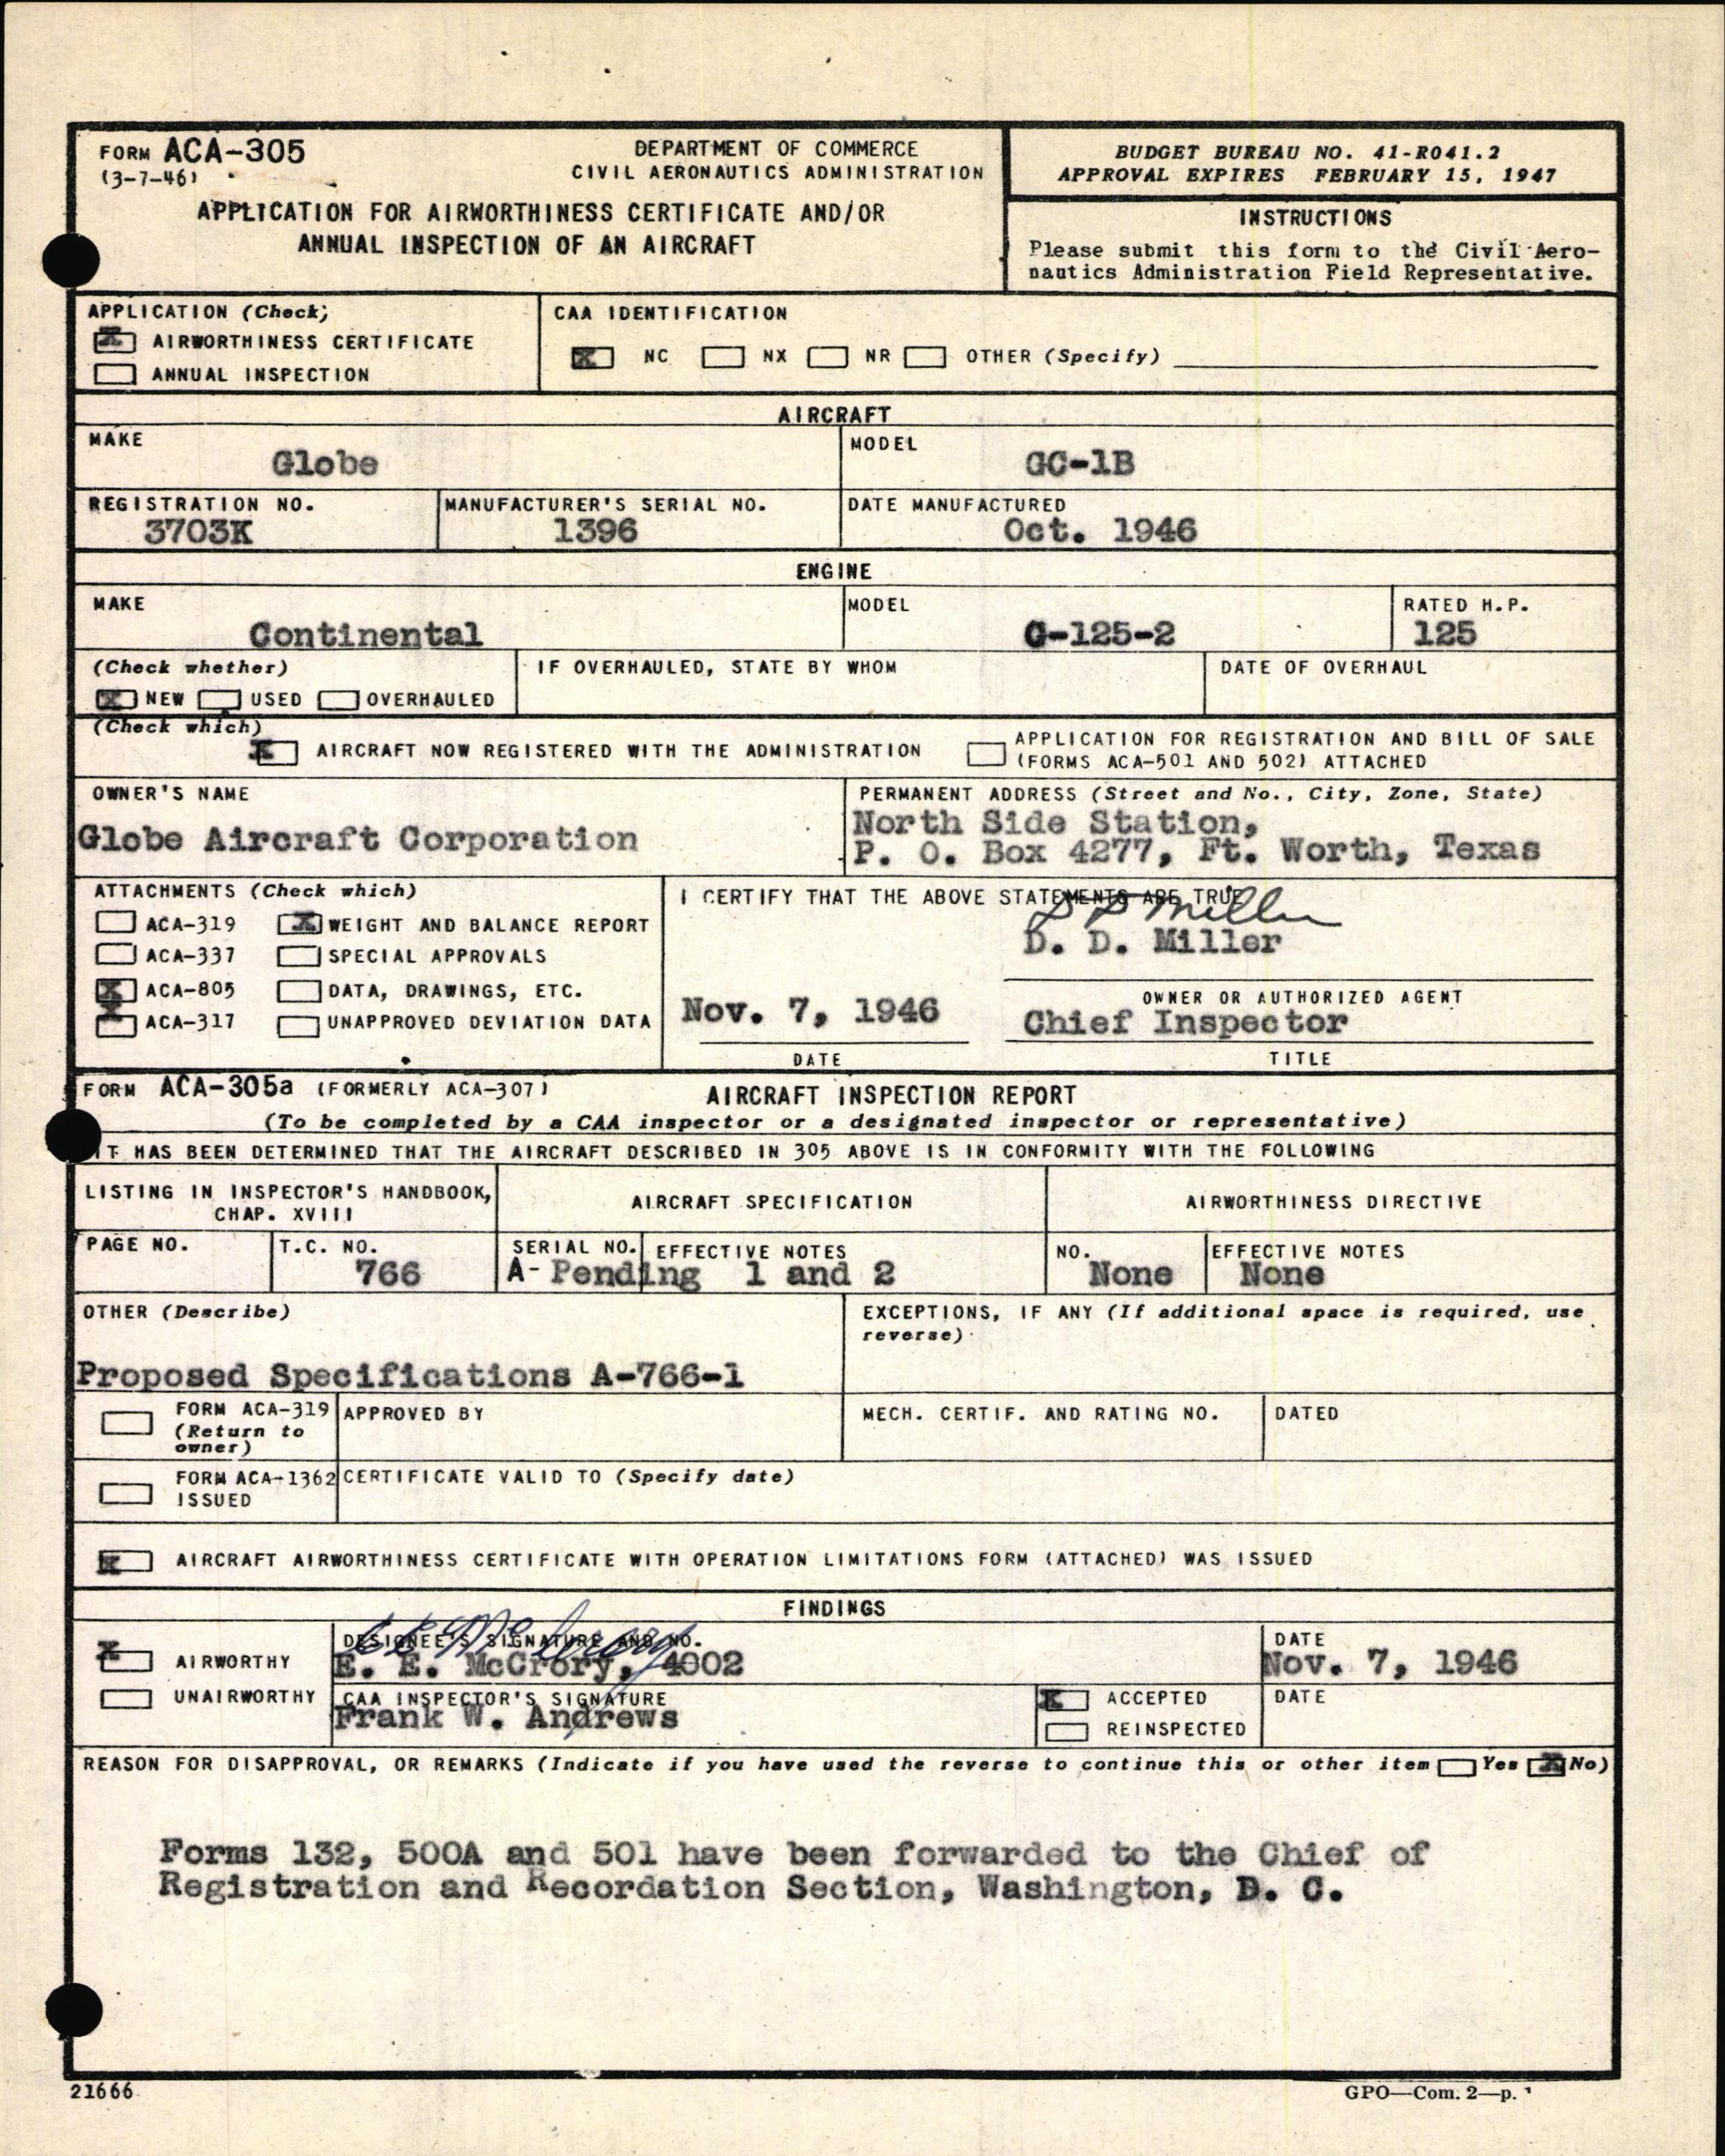 FORM ACA-305
(3-7-46)
DEPARTMENT OF COMMERCE
CIVIL AERONAUTICS ADMINISTRATION
APPLICATION FOR AIRWORTHINESS CERTIFICATE AND/OR
ANNUAL INSPECTION OF AN AIRCRAFT
BUDGET BUREAU NO. 41-R041.2
APPROVAL EXPIRES FEBRUARY 15, 1947
INSTRUCTIONS
Please submit this form to the Civil Aero-
nautics Administration Field Representative.
APPLICATION (Check)
X AIRWORTHINESS CERTIFICATE
ANNUAL INSPECTION
CAA IDENTIFICATION
X NC NX NR OTHER (Specify)
AIRCRAFT
MAKE
Globe
MODEL
GC-1B
REGISTRATION NO.
3703K
MANUFACTURER'S SERIAL NO.
1396
DATE MANUFACTURED
Oct. 1946
ENGINE
MAKE
Continental
MODEL
C-125-2
RATED H.P.
125
(Check whether)
X NEW USED OVERHAULED
IF OVERHAULED, STATE BY WHOM
DATE OF OVERHAUL
(Check which)
X AIRCRAFT NOW REGISTERED WITH THE ADMINISTRATION
APPLICATION FOR REGISTRATION AND BILL OF SALE
(FORMS ACA-501 AND 502) ATTACHED
OWNER'S NAME
Globe Aircraft Corporation
PERMANENT ADDRESS (Street and No., City, Zone, State)
North Side Station,
P. O. Box 4277, Ft. Worth, Texas
ATTACHMENTS (Check which)
ACA-319 X WEIGHT AND BALANCE REPORT
ACA-337 SPECIAL APPROVALS
X ACA-805 DATA, DRAWINGS, ETC.
X ACA-317 UNAPPROVED DEVIATION DATA
I CERTIFY THAT THE ABOVE STATEMENTS ARE TRUE
D D Miller
D. D. Miller
OWNER OR AUTHORIZED AGENT
Nov. 7, 1946
Chief Inspector
DATE
TITLE
FORM ACA-305a (FORMERLY ACA-307)
AIRCRAFT INSPECTION REPORT
(To be completed by a CAA inspector or a designated inspector or representative)
IT HAS BEEN DETERMINED THAT THE AIRCRAFT DESCRIBED IN 305 ABOVE IS IN CONFORMITY WITH THE FOLLOWING
LISTING IN INSPECTOR'S HANDBOOK,
CHAP. XVIII
AIRCRAFT SPECIFICATION
AIRWORTHINESS DIRECTIVE
PAGE NO.
T.C. NO.
766
SERIAL NO.
A- Pending
EFFECTIVE NOTES
1 and 2
NO.
None
EFFECTIVE NOTES
None
OTHER (Describe)
Proposed Specifications A-766-1
EXCEPTIONS, IF ANY (If additional space is required, use
reverse)
FORM ACA-319
(Return to
owner)
APPROVED BY
MECH. CERTIF. AND RATING NO.
DATED
FORM ACA-1362
ISSUED
CERTIFICATE VALID TO (Specify date)
X AIRCRAFT AIRWORTHINESS CERTIFICATE WITH OPERATION LIMITATIONS FORM (ATTACHED) WAS ISSUED
FINDINGS
X AIRWORTHY
UNAIRWORTHY
DESIGNEE'S SIGNATURE AND NO.
E E McCrory
E. E. McCrory, 4002
DATE
Nov. 7, 1946
CAA INSPECTOR'S SIGNATURE
Frank W. Andrews
X ACCEPTED
REINSPECTED
DATE
REASON FOR DISAPPROVAL, OR REMARKS (Indicate if you have used the reverse to continue this or other item Yes X No)
Forms 132, 500A and 501 have been forwarded to the Chief of
Registration and Recordation Section, Washington, D. C.
21666
GPO—Com. 2—p.